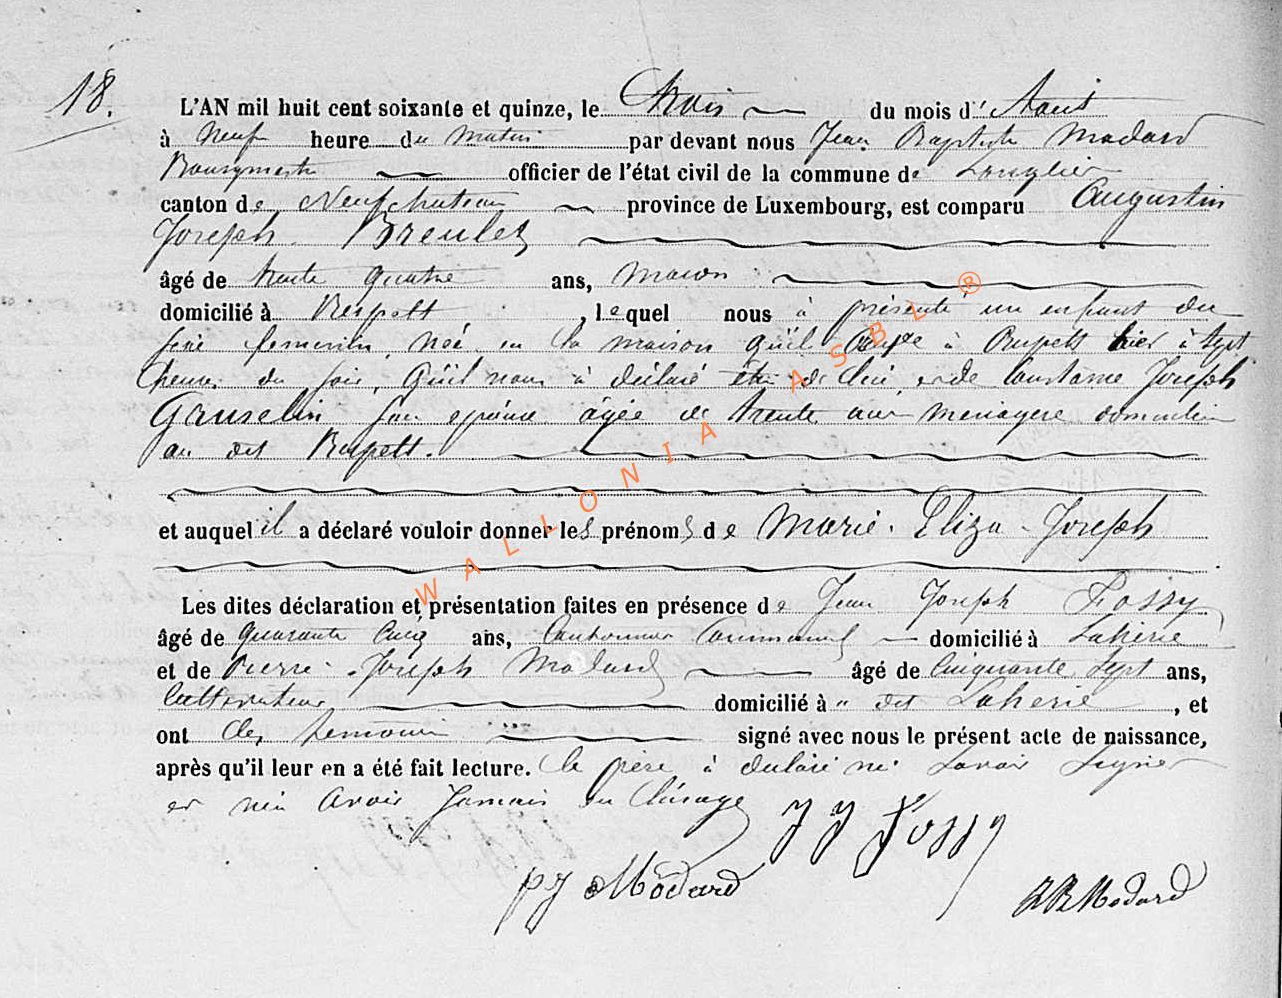 18.
L'AN mil huit cent soixante et quinze, le trois du mois d' Aout
à neuf heure du matin par devant nous Jean Baptiste Modard
Bourgmestre officier de l'état civil de la commune de Longlier
canton de Neufchateau province de Luxembourg, est comparu Augustin
Joseph Breulet
âgé de trente quatre ans, macon
domicilié à Respelt, lequel nous à présenté un enfant du
sexe femenin, née en la maison qu'il occupe à Respelt hier à sept
heures du soir, qu'il nous à déclaré être de lui et de Constance Joseph
Gauselin son epouse agée de trente ans menagere domiciliée
au dit Respelt.
et auquel il a déclaré vouloir donner les prénoms de Marie. Eliza. Joseph
Les dites déclaration et présentation faites en présence de Jean Joseph Fossy
âgé de quarante cinq ans, Cantonnier Communal domicilié à Laherie
et de Pierre. Joseph Modard âgé de cinquante sept ans,
Cultivateur domicilié à " dit Laherie, et
ont les temoins signé avec nous le présent acte de naissance,
après qu'il leur en a été fait lecture. le père à declaré ne savoir signer
et n'en avoir Jamais eu l'usage
JJ Fossy
pJ Modard
JB Modard
WALLONIA ASBL ®